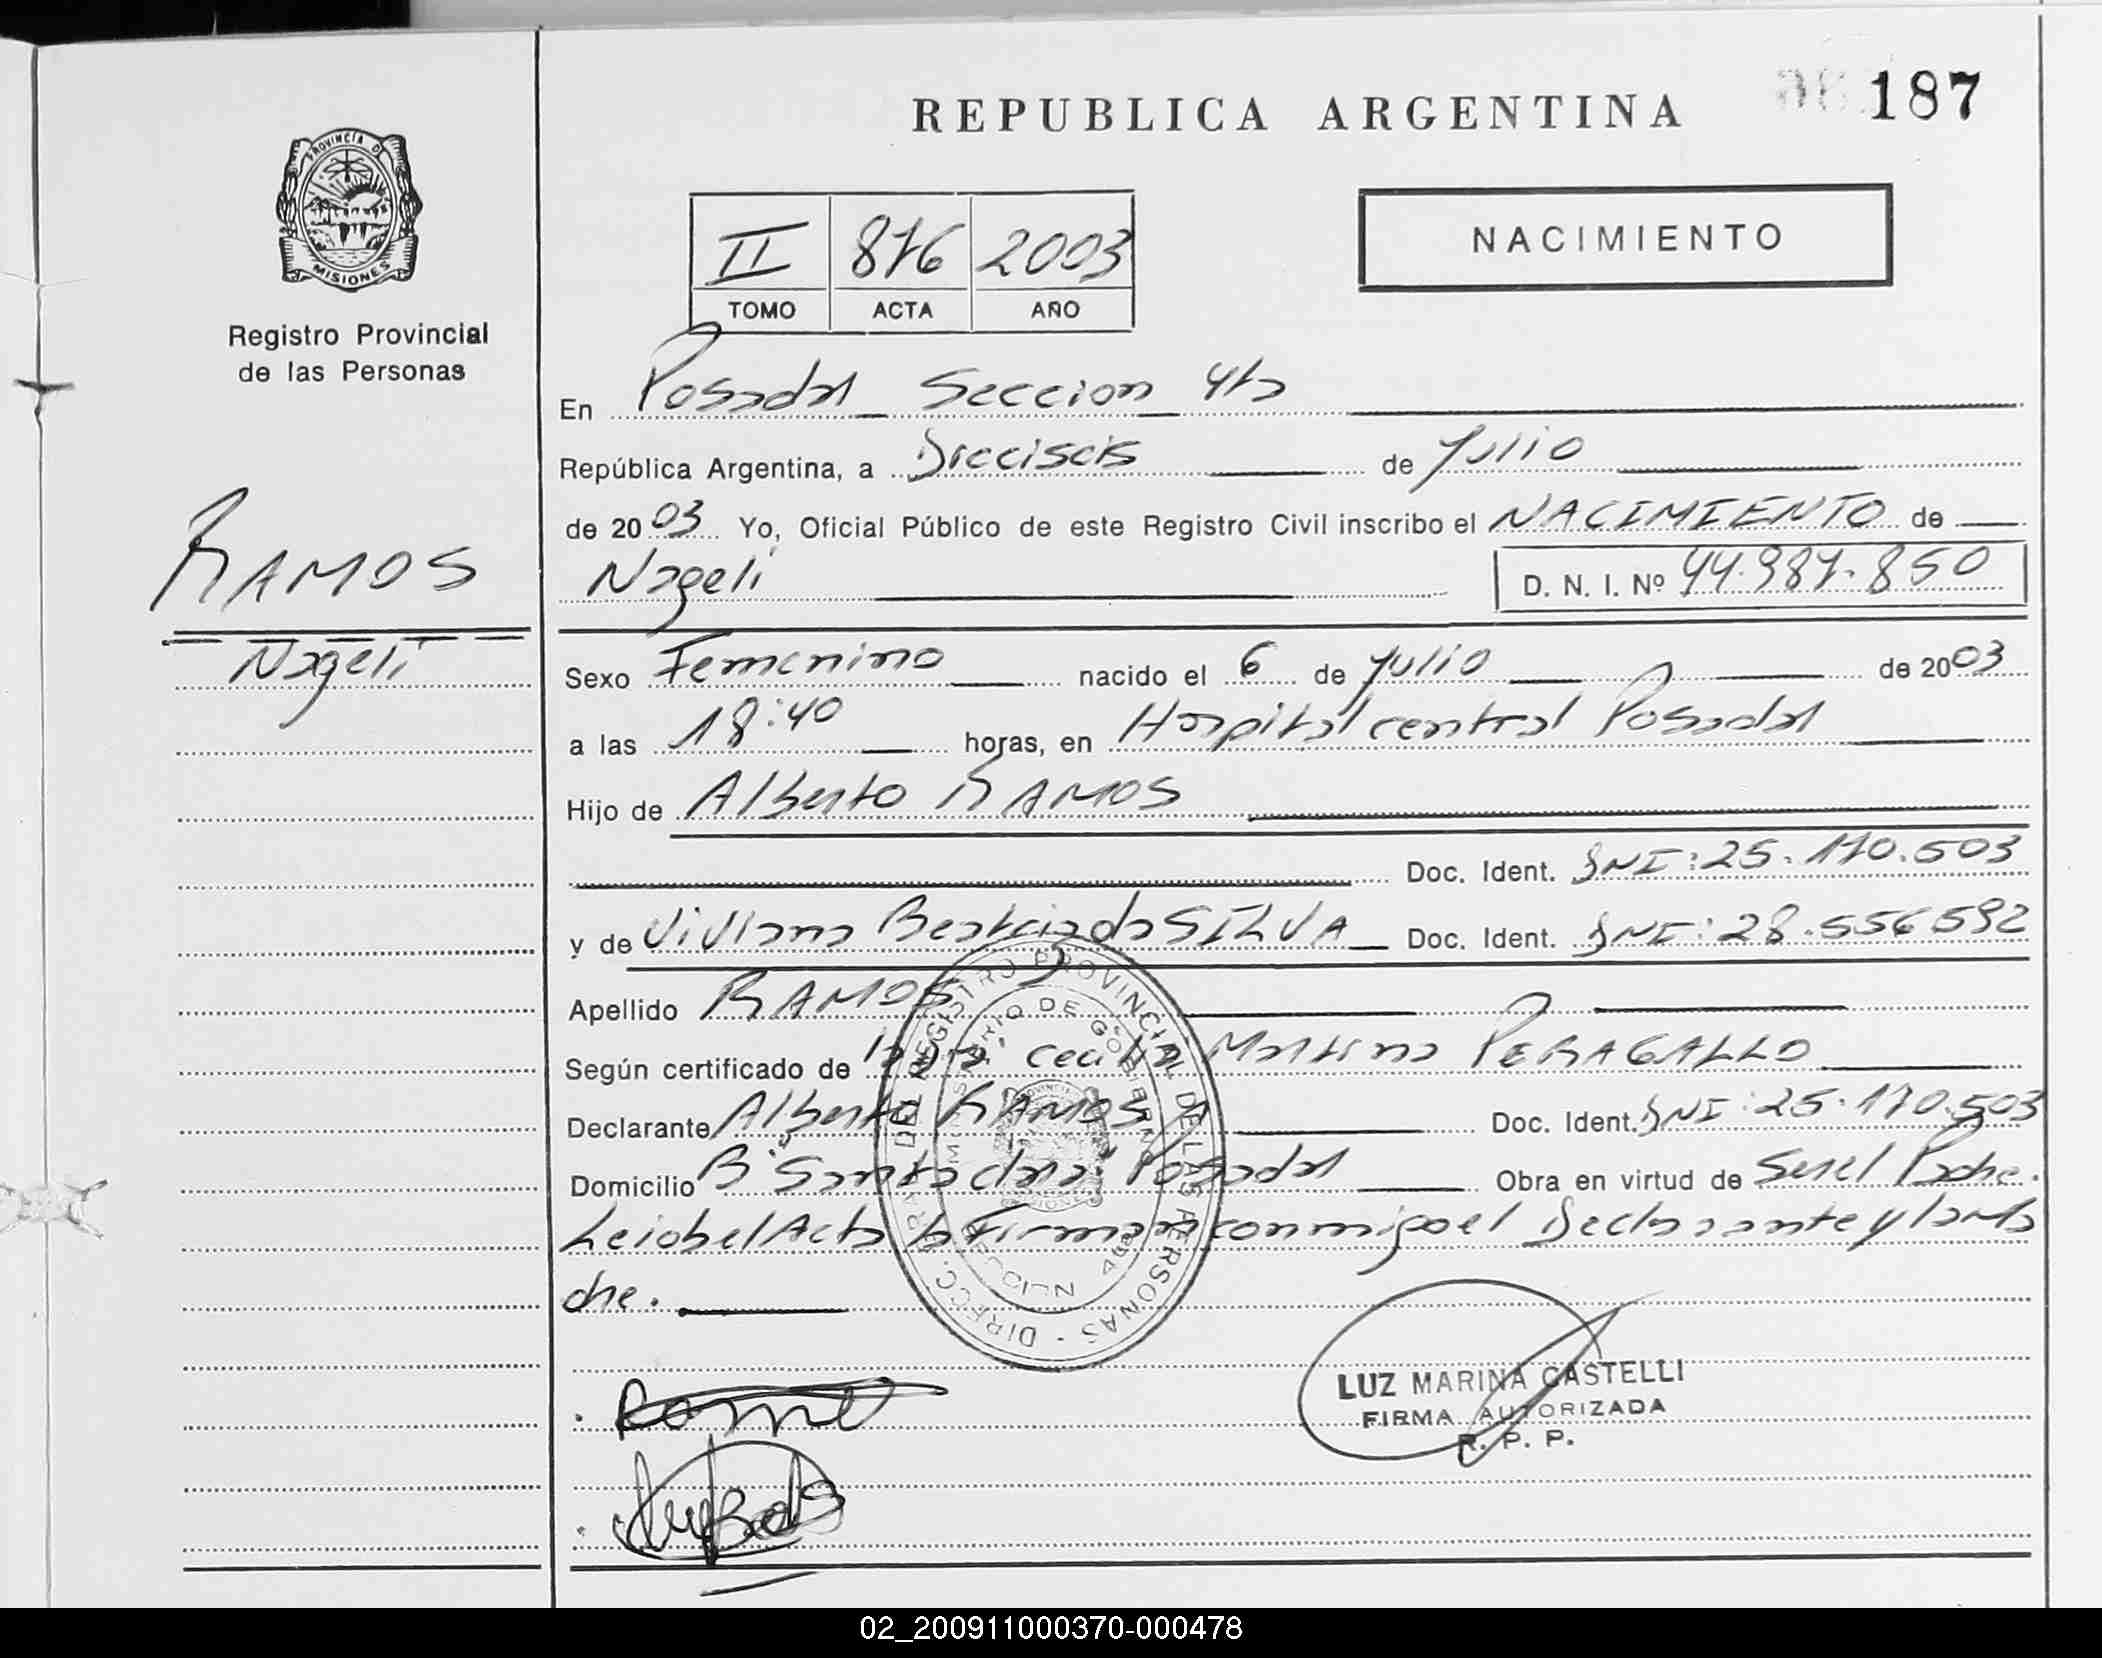 187
REPUBLICA ARGENTINA
PROVINCIA D
MISIONES
Registro Provincial
de las Personas
II 876 2003
TOMO ACTA AÑO
NACIMIENTO
En Posadas Seccion 4ta
República Argentina, a Dieciseis de Julio
de 2003 Yo, Oficial Público de este Registro Civil inscribo el NACIMIENTO de
Nageli D. N. I. Nº 44.987.850
RAMOS
Nageli
Sexo Femenino nacido el 6 de Julio de 2003
a las 18:40 horas, en Hospital central Posadas
Hijo de Alberto RAMOS
Doc. Ident. DNI: 25.170.503
y de Viviana Beatriz da SILVA Doc. Ident. DNI: 28.556592
Apellido RAMOS
Según certificado de Martina PERAGALLO
Declarante Alberto RAMOS Doc. Ident. DNI: 25.170.503
Domicilio B° "Santa clara" Posadas Obra en virtud de Ser el Padre.
Leida el Acta la Firman conmigo el Declarante y la ma
dre.
DIRECC. GRAL. DEL REGISTRO PROVINCIAL DE LAS PERSONAS
MINISTERIO DE GOBIERNO
LUZ MARINA CASTELLI
FIRMA AUTORIZADA
R. P. P.
02_200911000370-000478